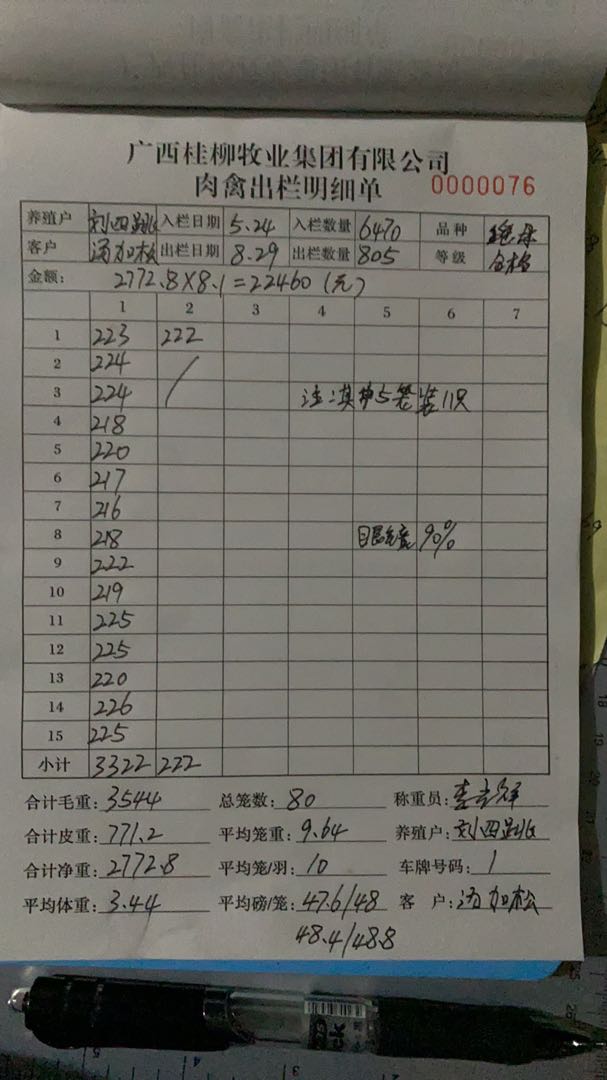 广西桂柳牧业集团有限公司
肉禽出栏明细单 0000076
养殖户 刘四 入栏日期 5.24 入栏数量 6470 品种
客户 汤加松 出栏日期 8.29 出栏数量 805 等级 合格
金额: 2772.8×8.1=22460(元)
1 2 3 4 5 6 7
1 223 222
2 224
3 224 注:其中5笼装11只
4 218
5 220
6 217
7 216
8 218 90%
9 222
10 219
11 225
12 225
13 220
14 226
15 225
小计 3322 222
合计毛重: 3544 总笼数: 80 称重员:
合计皮重: 771.2 平均笼重: 9.64 养殖户: 刘四
合计净重: 2772.8 平均笼/羽: 10 车牌号码: 1
平均体重: 3.44 平均磅/笼: 47.6/48 客 户: 汤加松
48.4/48.8